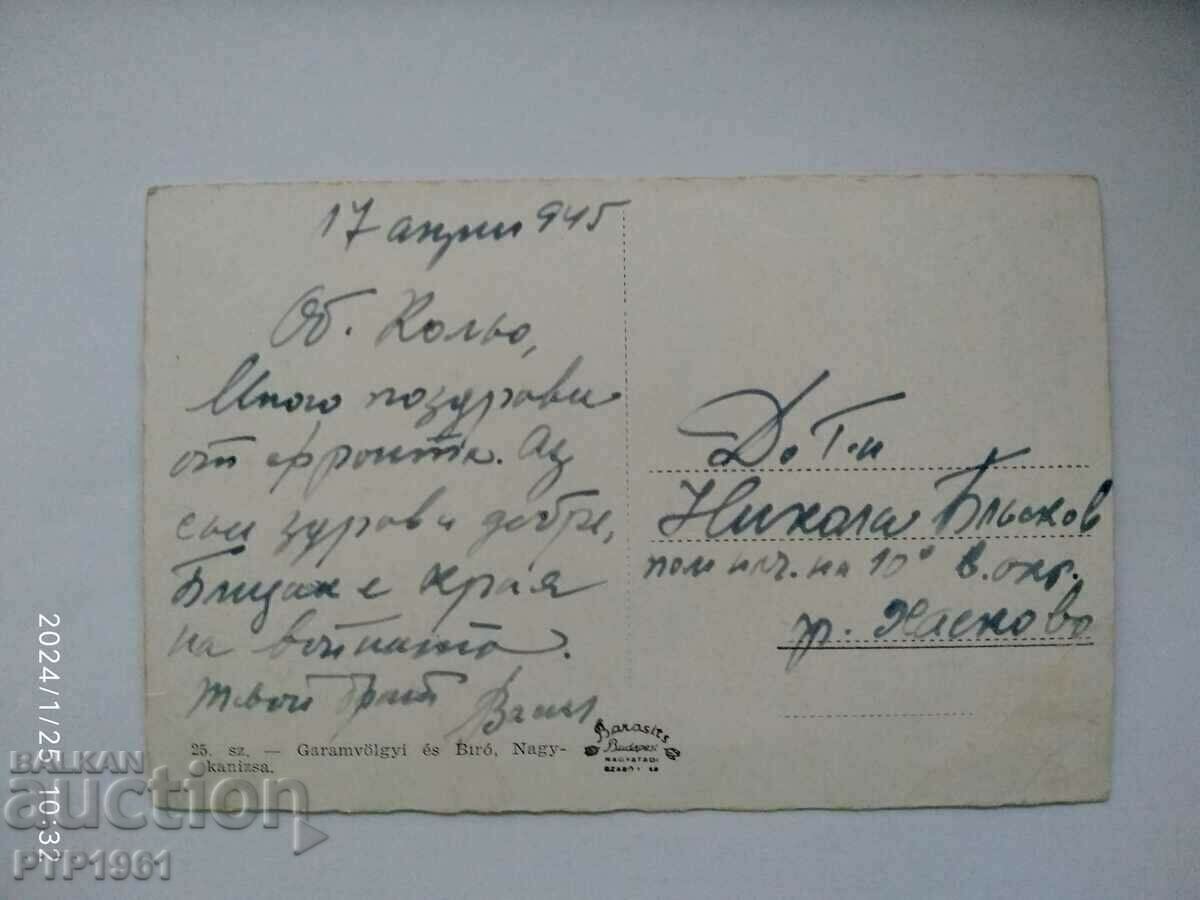 17 април 945
Об. Кольо,
Много поздрави
от фронта. Аз
съм здрав и добре,
Близък е края
на войната.
твой брат
До Г-н
Никола Бльсков
пом нач. на 10° в. окр.
гр. Хасково
25. sz. — Garamvölgyi és Bíró, Nagy-
kanizsa.
Barasits
Budapest
NAGYATÁDI
2024/1/25 10:32
BALKAN
auction
PTP1961